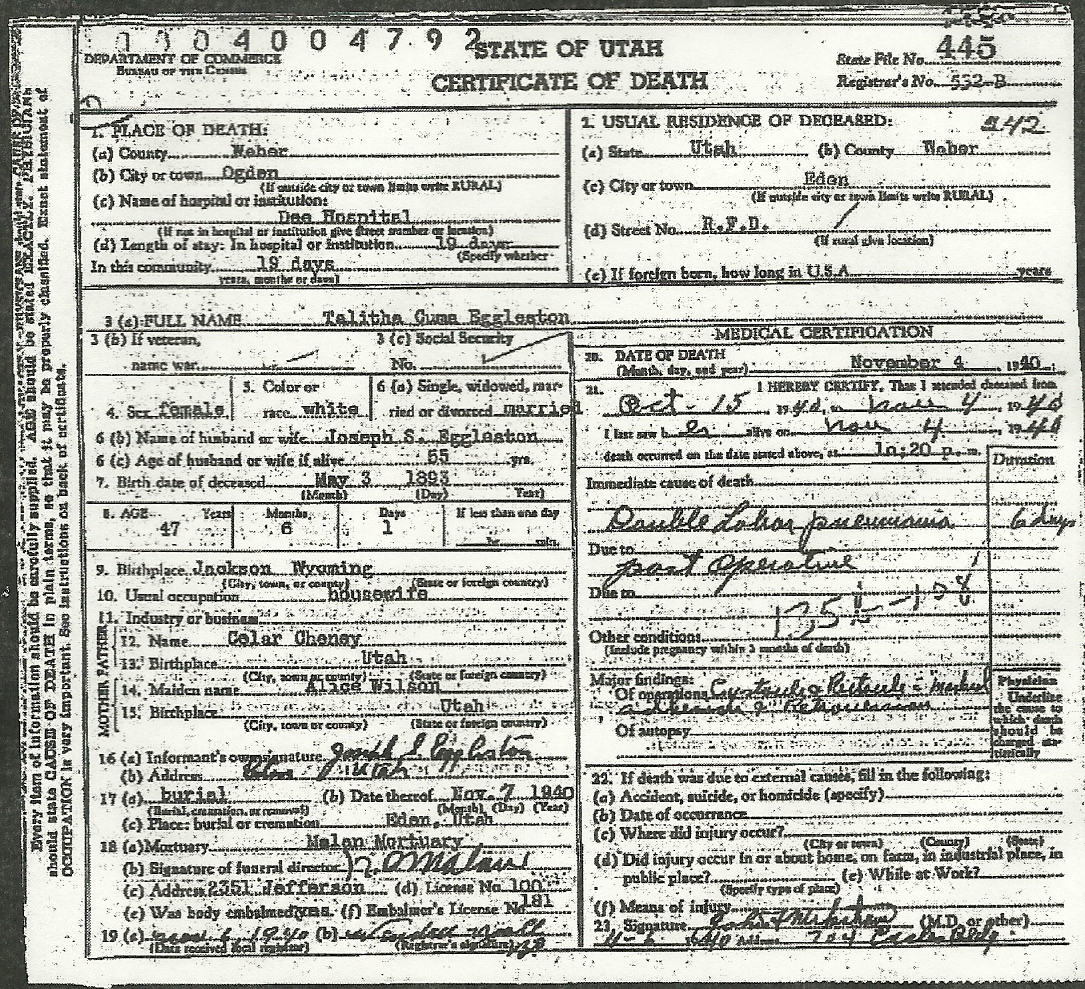 1004004792
STATE OF UTAH
CERTIFICATE OF DEATH
DEPARTMENT OF COMMERCE
BUREAU OF THE CENSUS
State File No. 445
Registrar's No. 532-B
Every item of information should be carefully supplied. AGE should be stated EXACTLY. PHYSICIANS
should state CAUSE OF DEATH in plain terms, so that it may be properly classified. Exact statement of
OCCUPATION is very important. See instructions on back of certificate.
1. PLACE OF DEATH:
(a) County Weber
(b) City or town Ogden
(If outside city or town limits write RURAL)
(c) Name of hospital or institution:
Dee Hospital
(If not in hospital or institution give street number or location)
(d) Length of stay: In hospital or institution 19 days
(Specify whether
In this community 19 days
years, months or days)
2. USUAL RESIDENCE OF DECEASED: 242
(a) State Utah (b) County Weber
(c) City or town Eden
(If outside city or town limits write RURAL)
(d) Street No. R.F.D.
(If rural give location)
(e) If foreign born, how long in U.S.A. years
3 (a) FULL NAME Talitha Cuma Eggleston
3 (b) If veteran,
name war
3 (c) Social Security
No.
4. Sex female
5. Color or
race white
6 (a) Single, widowed, mar-
ried or divorced married
6 (b) Name of husband or wife Joseph S. Eggleston
6 (c) Age of husband or wife if alive 55 yrs.
7. Birth date of deceased May 3 1893
(Month) (Day) (Year)
8. AGE Years Months Days If less than one day
47 6 1 hr. min.
9. Birthplace Jackson Wyoming
(City, town, or county) (State or foreign country)
10. Usual occupation housewife
11. Industry or business
FATHER
12. Name Celar Cheney
13. Birthplace Utah
(City, town or county) (State or foreign country)
MOTHER
14. Maiden name Alice Wilson
15. Birthplace Utah
(City, town or county) (State or foreign country)
16 (a) Informant's own signature Joseph S Eggleston
(b) Address Utah
17 (a) burial (b) Date thereof Nov. 7 1940
(Burial, cremation, or removal) (Month) (Day) (Year)
(c) Place: burial or cremation Eden, Utah
18 (a) Mortuary Malan Mortuary
(b) Signature of funeral director
(c) Address 2351 Jefferson (d) License No. 100
(e) Was body embalmed yes. (f) Embalmer's License No. 181
19 (a) Nov 6 1940 (b)
(Date received local registrar) (Registrar's signature)
MEDICAL CERTIFICATION
20. DATE OF DEATH
(Month, day, and year) November 4 1940
21. I HEREBY CERTIFY, That I attended deceased from
Oct-15 1940, to Nov 4 1940
I last saw her alive on Nov 4 1940
death occurred on the date stated above, at 10:20 p.m.
Duration
Immediate cause of death
Double Lobar pneumonia 6 days
Due to
post Operative
Due to
Other conditions
(Include pregnancy within 3 months of death)
Major findings:
Of operations Cystocele & Rectocele
Of autopsy
Physician
Underline
the cause to
which death
should be
charged sta-
tistically
22. If death was due to external causes, fill in the following:
(a) Accident, suicide, or homicide (specify)
(b) Date of occurrence
(c) Where did injury occur?
(City or town) (County) (State)
(d) Did injury occur in or about home, on farm, in industrial place, in
public place? (e) While at Work?
(Specify type of place)
(f) Means of injury
23. Signature (M.D. or other)
11-6 1940 Address 704 Eccles Bldg